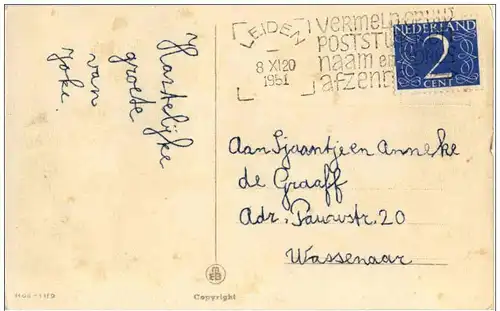 Hartelijke
groete
van
Joke.
LEIDEN
8 XI 20
1951
VERMELD OP UW
POSTSTUK
naam en
afzend
NEDERLAND
2
CENT
Aan Sjaantje en Anneke
de Graaff
Adr. Pauwstr. 20
Wassenaar
Copyright